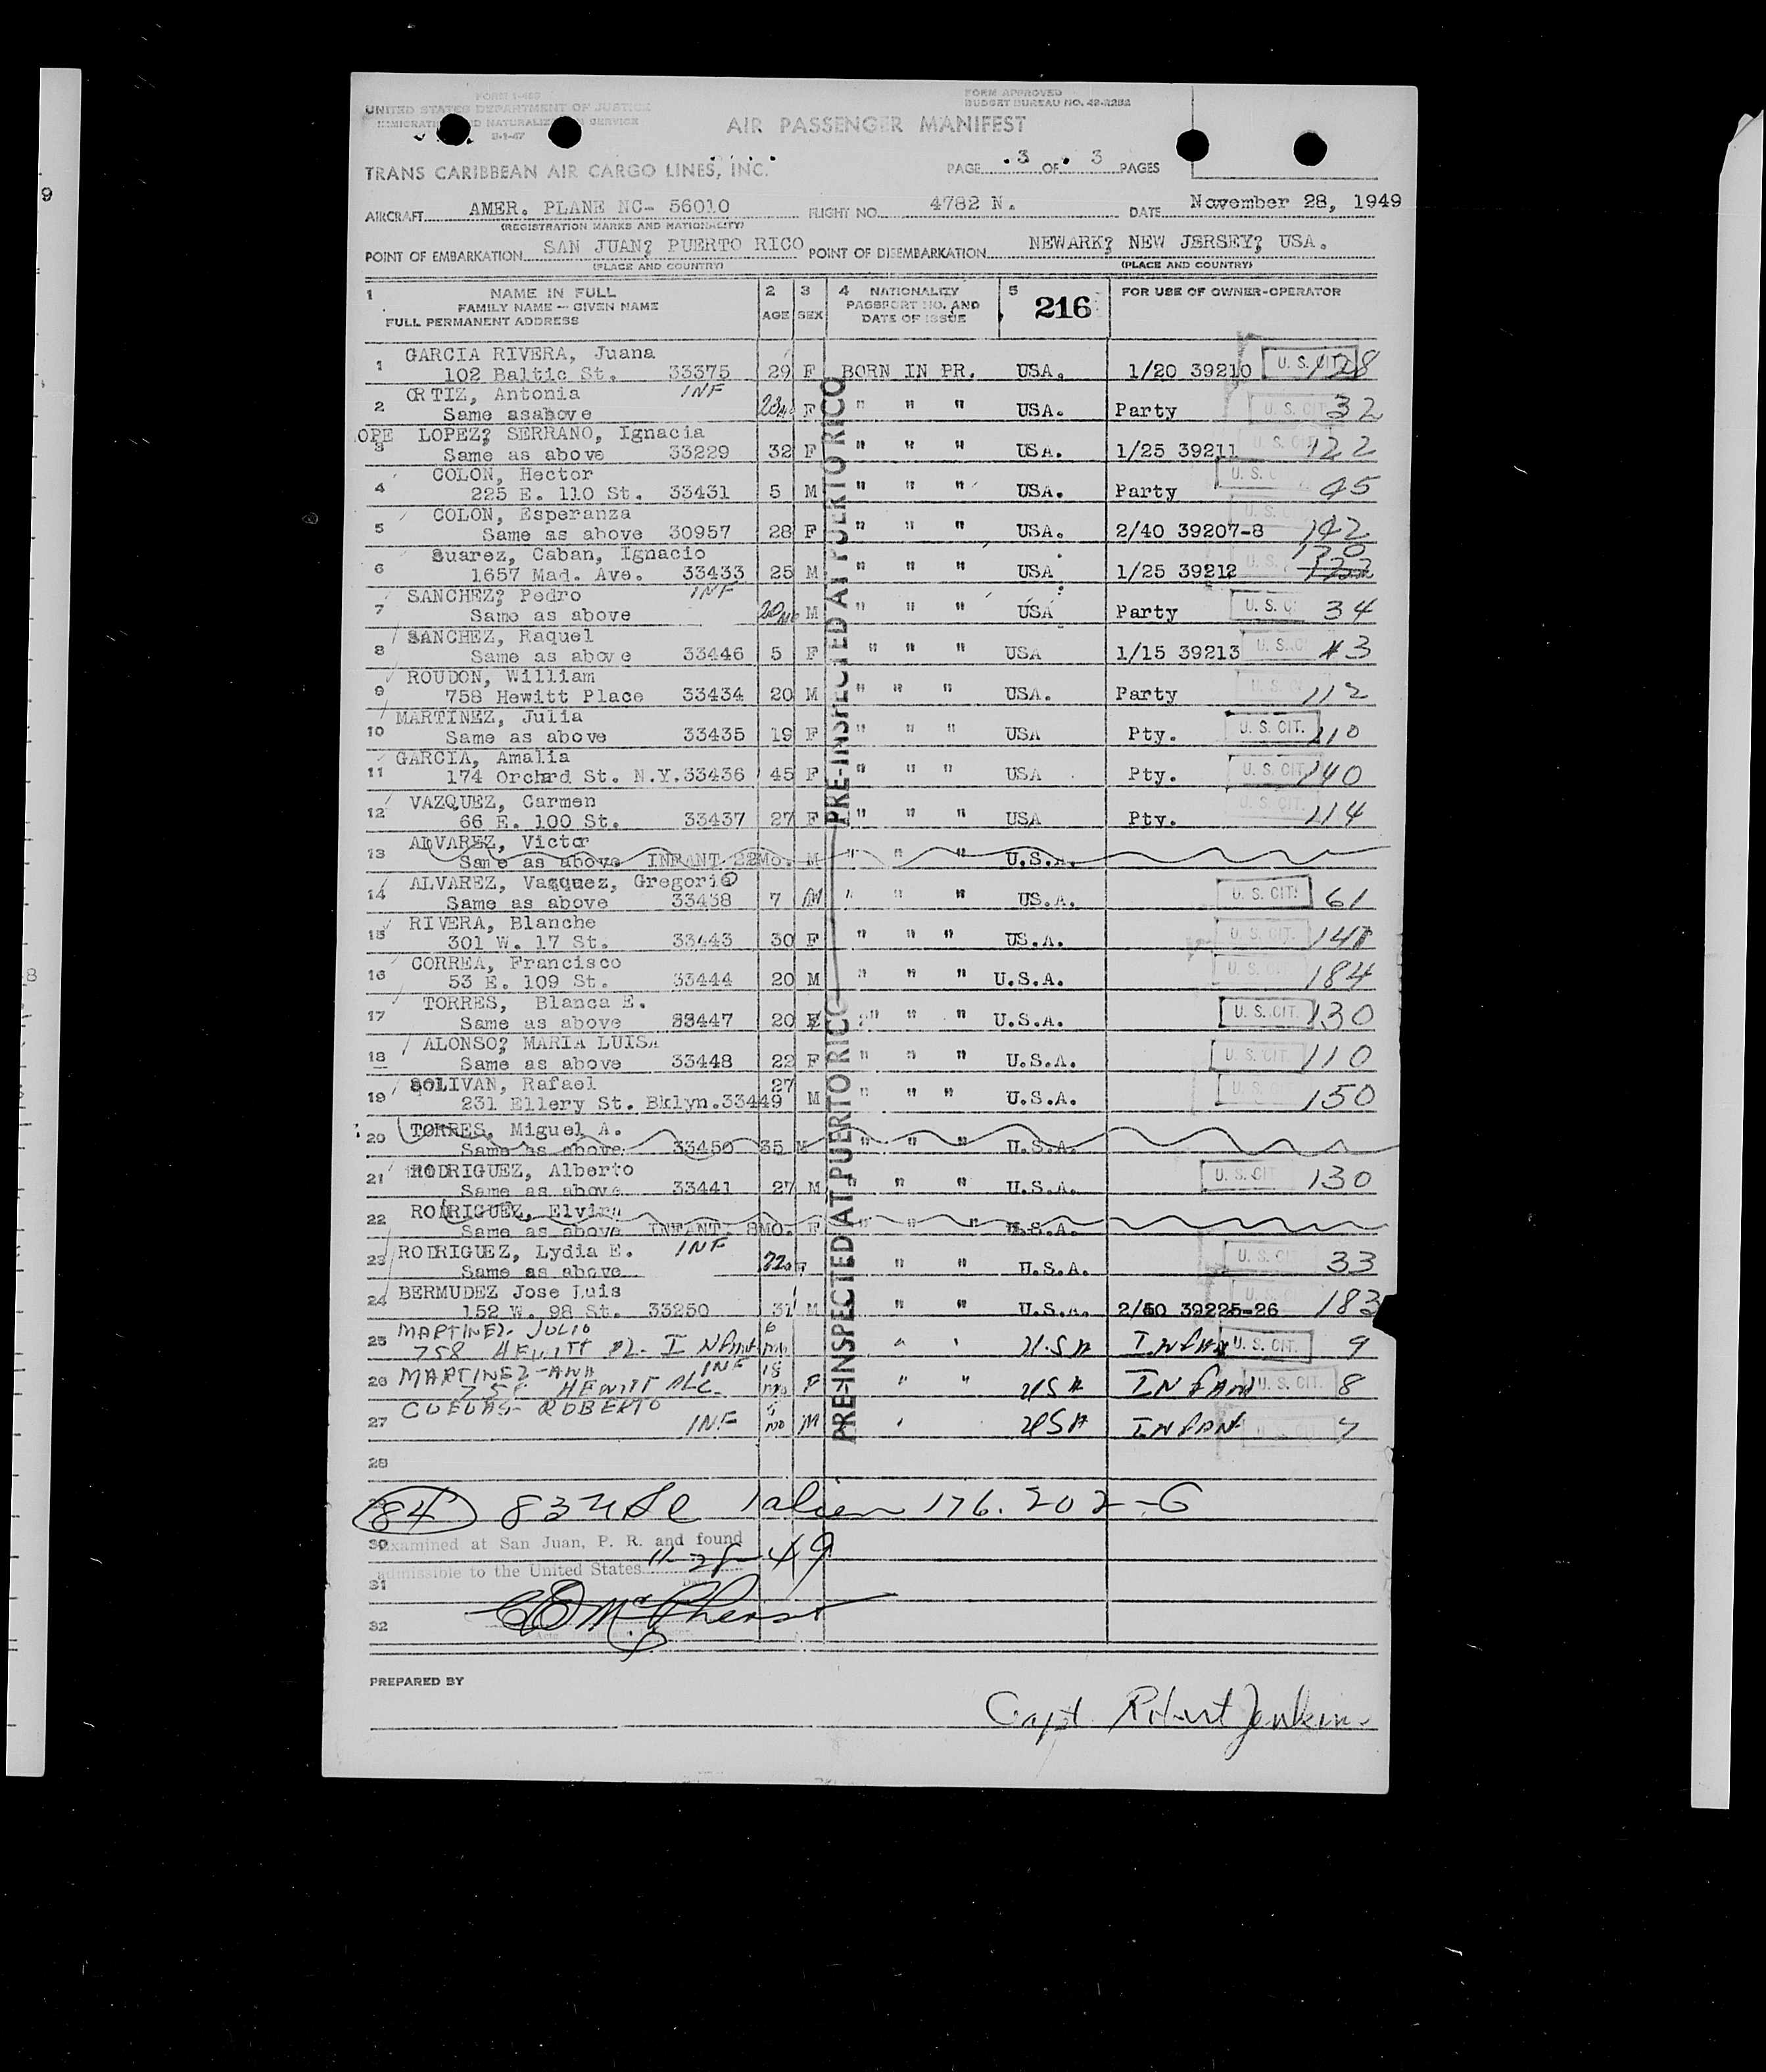 FORM I-466
UNITED STATES DEPARTMENT OF JUSTICE
IMMIGRATION AND NATURALIZATION SERVICE
FORM APPROVED
BUDGET BUREAU NO. 43-R252
AIR PASSENGER MANIFEST
TRANS CARIBBEAN AIR CARGO LINES, INC.
PAGE 3 OF 3 PAGES
AIRCRAFT AMER. PLANE NC- 56010 FLIGHT NO. 4782 N. DATE November 28, 1949
(REGISTRATION MARKS AND NATIONALITY)
POINT OF EMBARKATION SAN JUAN? PUERTO RICO POINT OF DISEMBARKATION NEWARK? NEW JERSEY? USA.
(PLACE AND COUNTRY) (PLACE AND COUNTRY)
1 NAME IN FULL 2 3 4 NATIONALITY 5 216 FOR USE OF OWNER-OPERATOR
FAMILY NAME — GIVEN NAME AGE SEX PASSPORT NO. AND
FULL PERMANENT ADDRESS DATE OF ISSUE
1 GARCIA RIVERA, Juana
102 Baltic St. 33375 29 F BORN IN PR. USA. 1/20 39210 U. S. CIT. 128
2 ORTIZ, Antonia INF
Same asabove 23 F " " " USA. Party U. S. CIT. 32
OPE LOPEZ? SERRANO, Ignacia
3 Same as above 33229 32 F " " " USA. 1/25 39211 U. S. CIT. 122
4 COLON, Hector
225 E. 110 St. 33431 5 M " " " USA. Party U. S. C 45
5 COLON, Esperanza
Same as above 30957 28 F " " " USA. 2/40 39207-8 142
6 Suarez, Caban, Ignacio
1657 Mad. Ave. 33433 25 M " " " USA 1/25 39212 U. S. 170
7 SANCHEZ? Pedro INF
Same as above 20 M " " " USA Party U. S. C 34
8 SANCHEZ, Raquel
Same as above 33446 5 F " " " USA 1/15 39213 U. S. C 43
9 ROUDON, William
758 Hewitt Place 33434 20 M " " " USA. Party 112
10 MARTINEZ, Julia
Same as above 33435 19 F " " " USA Pty. U. S. CIT. 110
11 GARCIA, Amalia
174 Orchrd St. N.Y. 33436 45 F " " " USA Pty. U. S. CIT. 140
12 VAZQUEZ, Carmen
66 E. 100 St. 33437 27 F " " " USA Pty. U. S. CIT. 114
13 ALVAREZ, Victor
Same as above INFANT 22Mo. M " " " U.S.A.
14 ALVAREZ, Vazquez, Gregorio
Same as above 33438 7 M " " " US.A. U. S. CIT. 61
15 RIVERA, Blanche
301 W. 17 St. 33443 30 F " " " US.A. U. S. CIT. 147
16 CORREA, Francisco
53 E. 109 St. 33444 20 M " " " U.S.A. U. S. CIT. 184
17 TORRES, Blanca E.
Same as above 33447 20 F " " " U.S.A. U. S. CIT. 130
18 ALONSO? MARIA LUISA
Same as above 33448 22 F " " " U.S.A. U. S. CIT. 110
19 SOLIVAN, Rafael 27
231 Ellery St. Bklyn. 33449 M " " " U.S.A. U. S. 150
20 TORRES, Miguel A.
Same as above 33450 35 M " " " U.S.A.
21 RODRIGUEZ, Alberto
Same as above 33441 27 M " " " U.S.A. U. S. CIT 130
22 RODRIGUEZ, Elvira
Same as above INFANT 8Mo. F " " " U.S.A.
23 RODRIGUEZ, Lydia E. INF
Same as above 22 F " " U.S.A. U. S. C 33
24 BERMUDEZ Jose Luis
152 W. 98 St. 33250 31 M " " U.S.A. 2/50 39225-26 183
25 MARTINEZ- JULIO 6
758 HEWITT PL. INFANT " " U.S.A INFAN U. S. CIT. 9
26 MARTINEZ-ANA INF 18
758 HEWITT PLC. mo F " " USA INFAN U. S. CIT. 8
27 CUEVAS- ROBERTO
INF mo M " USA INFANT 7
28
84 83 1 alien 176.202-G
30 Examined at San Juan, P. R. and found
admissible to the United States 11-28-49
31 Date
32
PRE-INSPECTED AT PUERTO RICO
PRE-INSPECTED AT PUERTO RICO
PREPARED BY
Capt. Robert Jenkins